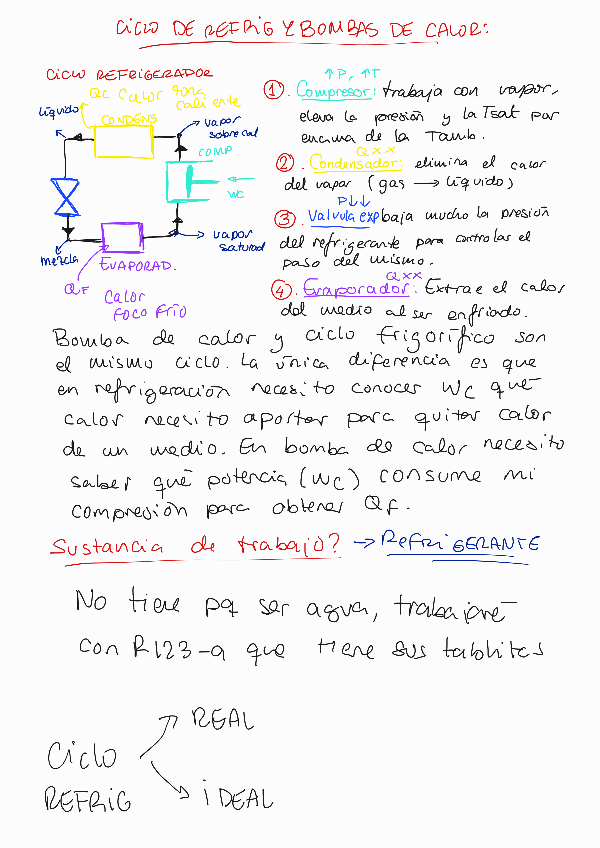 CICLO DE REFRIG Y BOMBAS DE CALOR:
CICLO REFRIGERADOR
QC Calor zona
caliente
líquido
CONDENS
vapor
sobrecal
COMP
WC
vapor
saturad
mezcla
EVAPORAD.
QF
Calor
FOCO FRÍO
↑P, ↑T
1. Compresor: trabaja con vapor,
eleva la presión y la Tsat por
encima de la Tamb.
Q××
2. Condensador: elimina el calor
del vapor (gas → líquido)
P↓↓
3. Valvula exp baja mucho la presión
del refrigerante para controlar el
paso del mismo.
Q××
4. Evaporador: Extrae el calor
del medio al ser enfriado.
Bomba de calor y ciclo frigorífico son
el mismo ciclo. La única diferencia es que
en refrigeración necesito conocer WC qué
calor necesito aportar para quitar calor
de un medio. En bomba de calor necesito
saber qué potencia (WC) consume mi
compresión para obtener QF.
Sustancia de trabajo? → REFRIGERANTE
No tiene pq ser agua, trabajaré
con R123-a que tiene sus tablitas
Ciclo
REFRIG
REAL
iDEAL